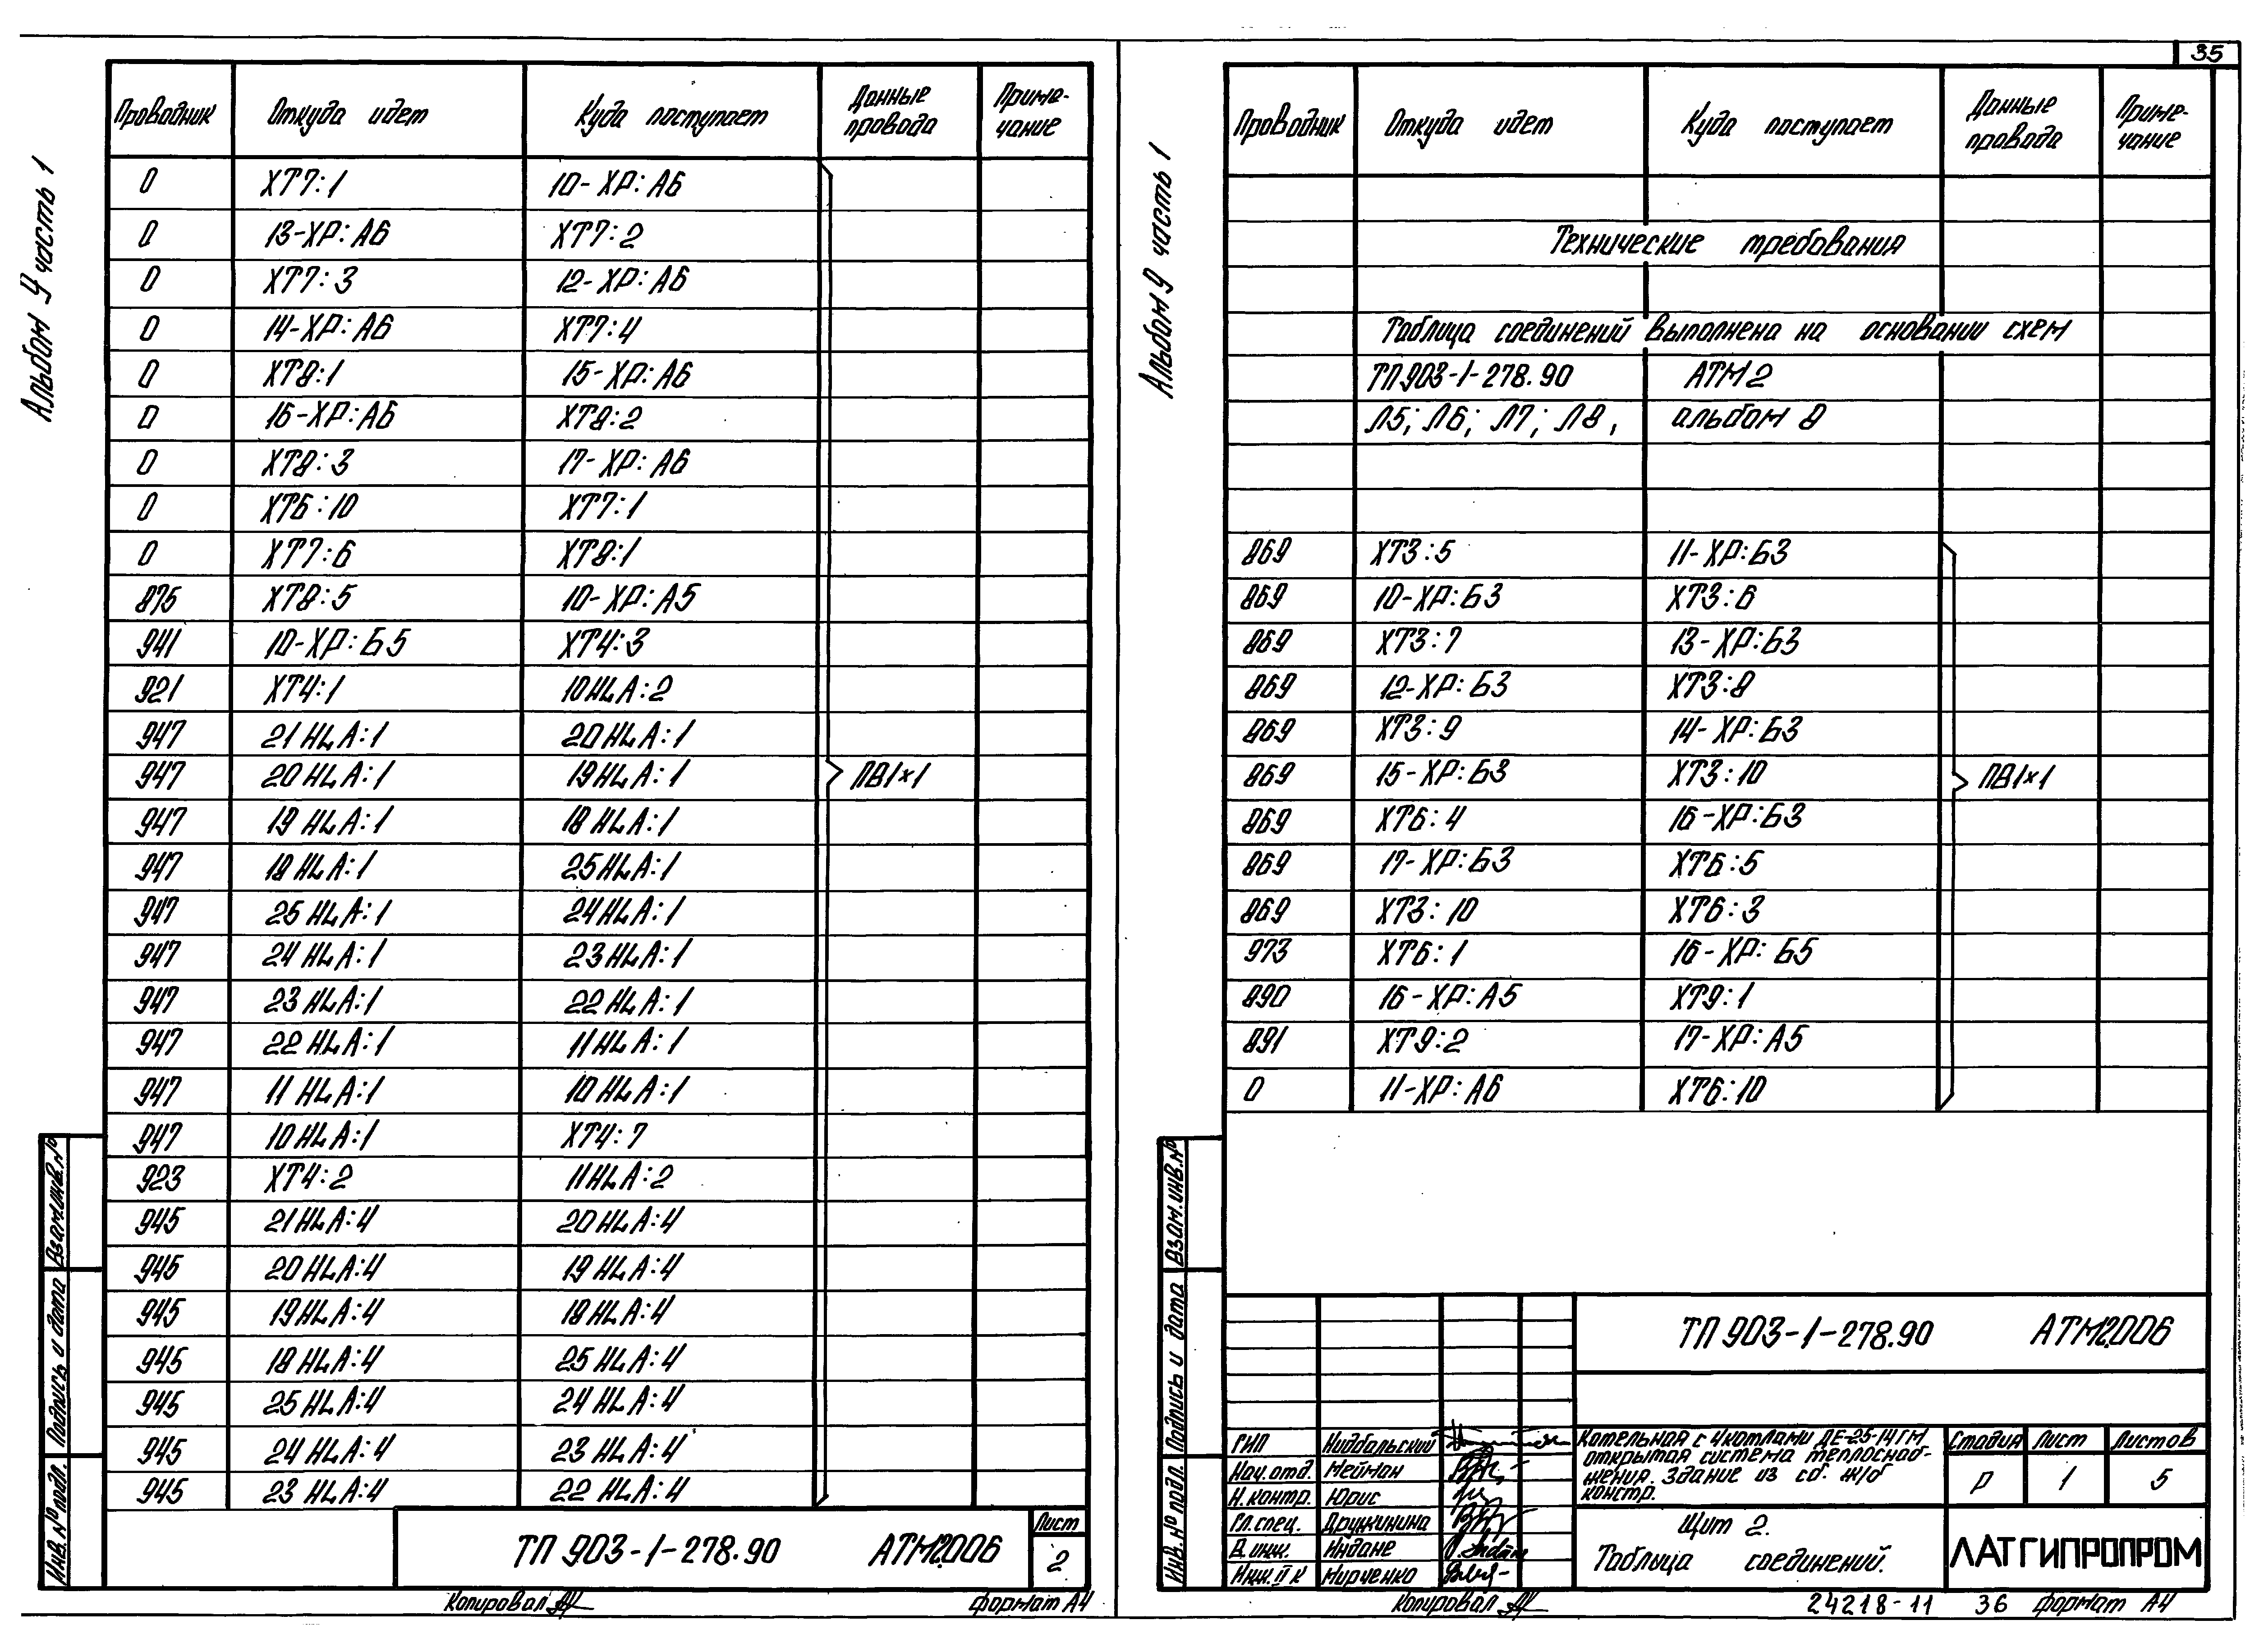 35
Альбом 9 часть 1
Проводник Откуда идет Куда поступает Данные провода Приме-чание
0 XT7:1 10-XP:А6
0 13-XP:А6 XT7:2
0 XT7:3 12-XP:А6
0 14-XP:А6 XT7:4
0 XT8:1 15-XP:А6
0 16-XP:А6 XT8:2
0 XT8:3 17-XP:А6
0 XT6:10 XT7:1
0 XT7:6 XT8:1
875 XT8:5 10-XP:А5
941 10-XP:Б5 XT4:3
921 XT4:1 10HLA:2
947 21HLA:1 20HLA:1
947 20HLA:1 19HLA:1 ПВ1×1
947 19HLA:1 18HLA:1
947 18HLA:1 25HLA:1
947 25HLA:1 24HLA:1
947 24HLA:1 23HLA:1
947 23HLA:1 22HLA:1
947 22HLA:1 11HLA:1
947 11HLA:1 10HLA:1
947 10HLA:1 XT4:7
923 XT4:2 11HLA:2
945 21HLA:4 20HLA:4
945 20HLA:4 19HLA:4
945 19HLA:4 18HLA:4
945 18HLA:4 25HLA:4
945 25HLA:4 24HLA:4
945 24HLA:4 23HLA:4
945 23HLA:4 22HLA:4
Взам.инв.№
Подпись и дата
Инв.№ подл.
ТП 903-1-278.90 АТМ2.006
Лист
2
Копировал
формат А4
Альбом 9 часть 1
Проводник Откуда идет Куда поступает Данные провода Приме-чание
Технические требования
Таблица соединений выполнена на основании схем
ТП903-1-278.90 АТМ2
Л5; Л6; Л7; Л8, альбом 8
869 XT3:5 11-XP:Б3
869 10-XP:Б3 XT3:6
869 XT3:7 13-XP:Б3
869 12-XP:Б3 XT3:8
869 XT3:9 14-XP:Б3
869 15-XP:Б3 XT3:10 ПВ1×1
869 XT6:4 16-XP:Б3
869 17-XP:Б3 XT6:5
869 XT3:10 XT6:3
973 XT6:1 16-XP:Б5
890 16-XP:А5 XT9:1
891 XT9:2 17-XP:А5
0 11-XP:А6 XT6:10
Взам.инв.№
Подпись и дата
Инв.№ подл.
ТП 903-1-278.90 АТМ2.006
ГИП Нидбальский
Нач.отд. Мейман
Н.контр. Юрис
Гл.спец. Дружинина
В.инж. Индане
Инж. II к Мирченко
Котельная с 4 котлами ДЕ-25-14ГМ
открытая система теплоснаб-
жения. Здание из сб. ж/б
констр.
Стадия Лист Листов
Р 1 5
Щит 2.
Таблица соединений.
ЛАТГИПРОПРОМ
Копировал
24218-11 36 формат А4